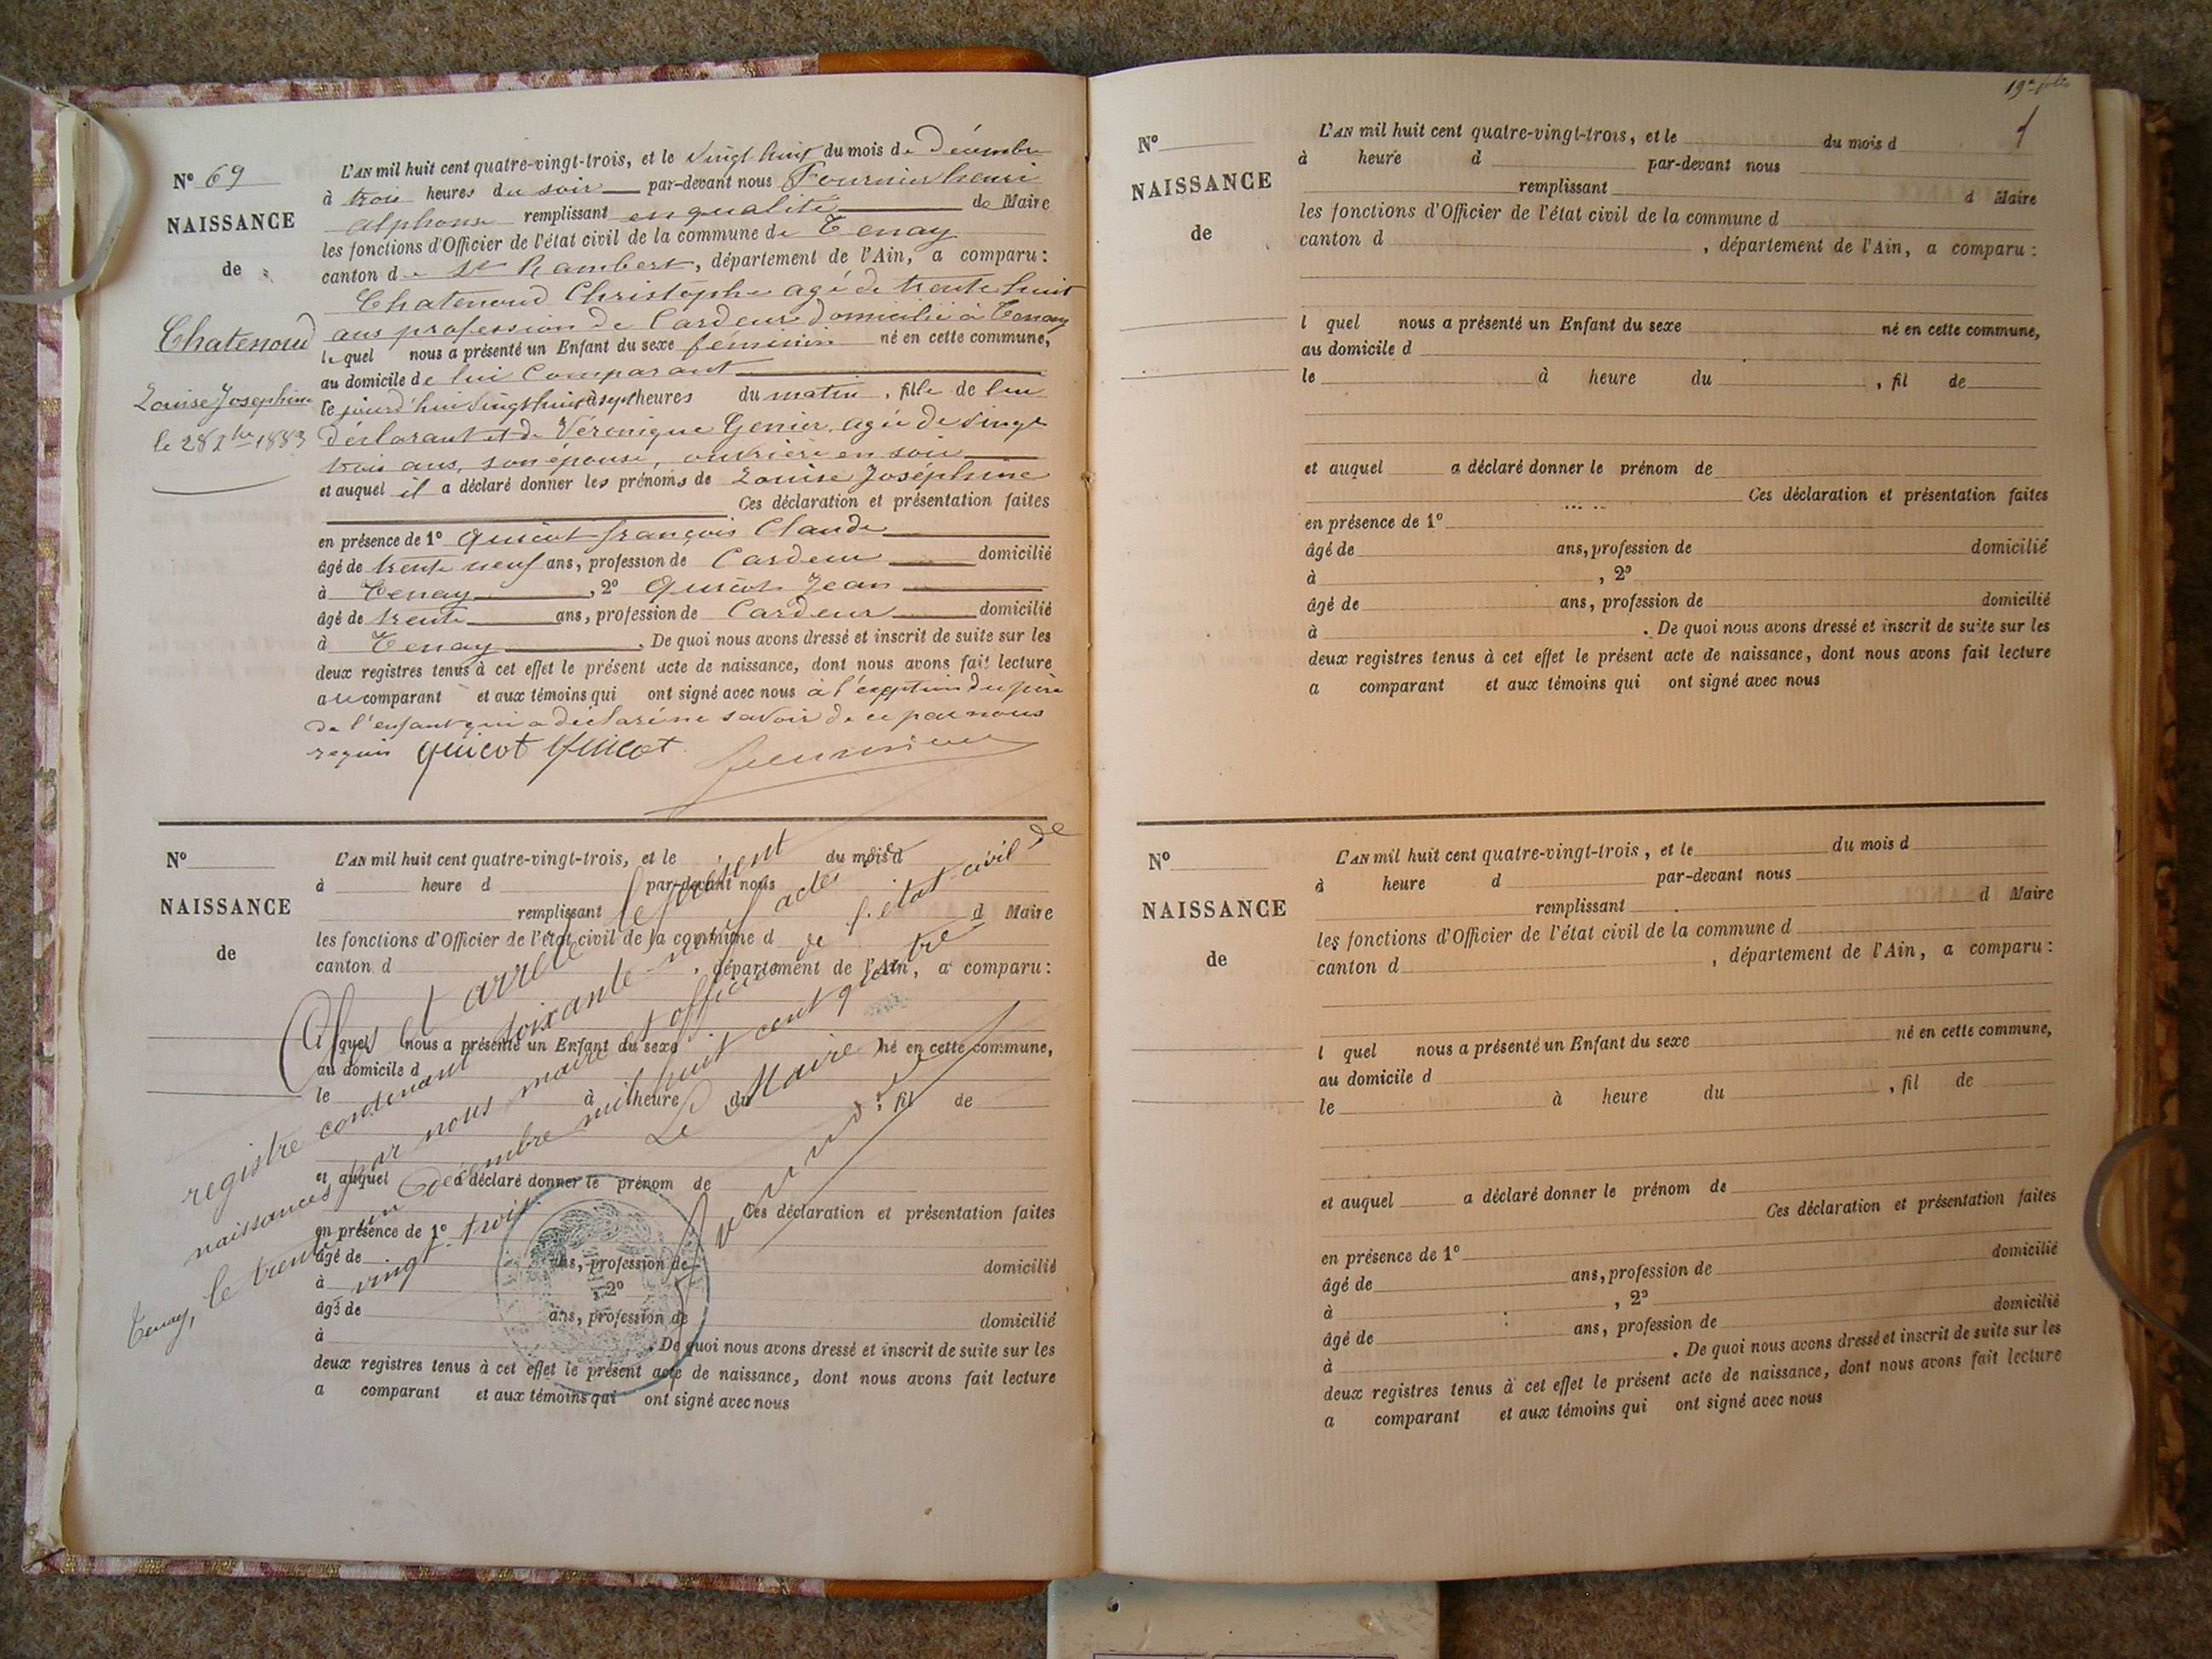 Nº 69
NAISSANCE
de
Chatenoud
Louise Joséphine
le 28 Xbre 1883
L'AN mil huit cent quatre-vingt-trois, et le vingt huit du mois de Décembre
à trois heures du soir par-devant nous Fournier henri
alphonse remplissant en qualité de Maire
les fonctions d'Officier de l'état civil de la commune de Tenay
canton de St Rambert, département de l'Ain, a comparu :
Chatenoud Christophe agé de trente huit
ans profession de Cardeur domicilié à Tenay
lequel nous a présenté un Enfant du sexe féminin né en cette commune,
au domicile de lui Comparant
le jourd'hui vingt huit à sept heures du matin, fille de lui
déclarant et de Véronique Genier, agée de vingt
trois ans, son épouse, ouvrière en soie
et auquel il a déclaré donner les prénoms de Louise Joséphine
Ces déclaration et présentation faites
en présence de 1º Quicot françois Claude
âgé de trente neuf ans, profession de Cardeur domicilié
à Tenay, 2º Quicot Jean
âgé de trente ans, profession de Cardeur domicilié
à Tenay. De quoi nous avons dressé et inscrit de suite sur les
deux registres tenus à cet effet le présent acte de naissance, dont nous avons fait lecture
au comparant et aux témoins qui ont signé avec nous à l'exception du père
de l'enfant qui a déclaré ne savoir de ce par nous
requis quicot quicot
Nº
NAISSANCE
de
L'AN mil huit cent quatre-vingt-trois, et le du mois d
à heure d par-devant nous
remplissant d Maire
les fonctions d'Officier de l'état civil de la commune d
canton d , département de l'Ain, a comparu :
l quel nous a présenté un Enfant du sexe né en cette commune,
au domicile d
le à heure du , fil de
et auquel a déclaré donner le prénom de
Ces déclaration et présentation faites
en présence de 1º
âgé de ans, profession de domicilié
à , 2º
âgé de ans, profession de domicilié
à . De quoi nous avons dressé et inscrit de suite sur les
deux registres tenus à cet effet le présent acte de naissance, dont nous avons fait lecture
a comparant et aux témoins qui ont signé avec nous
Clos et arrêté le présent
registre contenant soixante neuf actes de
naissances par nous maire et officier de l'état civil de
Tenay, le trente un Décembre mil huit cent quatre
vingt trois.
Le Maire
19e folio
Nº
NAISSANCE
de
L'AN mil huit cent quatre-vingt-trois, et le du mois d
à heure d par-devant nous
remplissant d Maire
les fonctions d'Officier de l'état civil de la commune d
canton d , département de l'Ain, a comparu :
l quel nous a présenté un Enfant du sexe né en cette commune,
au domicile d
le à heure du , fil de
et auquel a déclaré donner le prénom de
Ces déclaration et présentation faites
en présence de 1º
âgé de ans, profession de domicilié
à , 2º
âgé de ans, profession de domicilié
à . De quoi nous avons dressé et inscrit de suite sur les
deux registres tenus à cet effet le présent acte de naissance, dont nous avons fait lecture
a comparant et aux témoins qui ont signé avec nous
Nº
NAISSANCE
de
L'AN mil huit cent quatre-vingt-trois, et le du mois d
à heure d par-devant nous
remplissant d Maire
les fonctions d'Officier de l'état civil de la commune d
canton d , département de l'Ain, a comparu :
l quel nous a présenté un Enfant du sexe né en cette commune,
au domicile d
le à heure du , fil de
et auquel a déclaré donner le prénom de
Ces déclaration et présentation faites
en présence de 1º
âgé de ans, profession de domicilié
à , 2º
âgé de ans, profession de domicilié
à . De quoi nous avons dressé et inscrit de suite sur les
deux registres tenus à cet effet le présent acte de naissance, dont nous avons fait lecture
a comparant et aux témoins qui ont signé avec nous